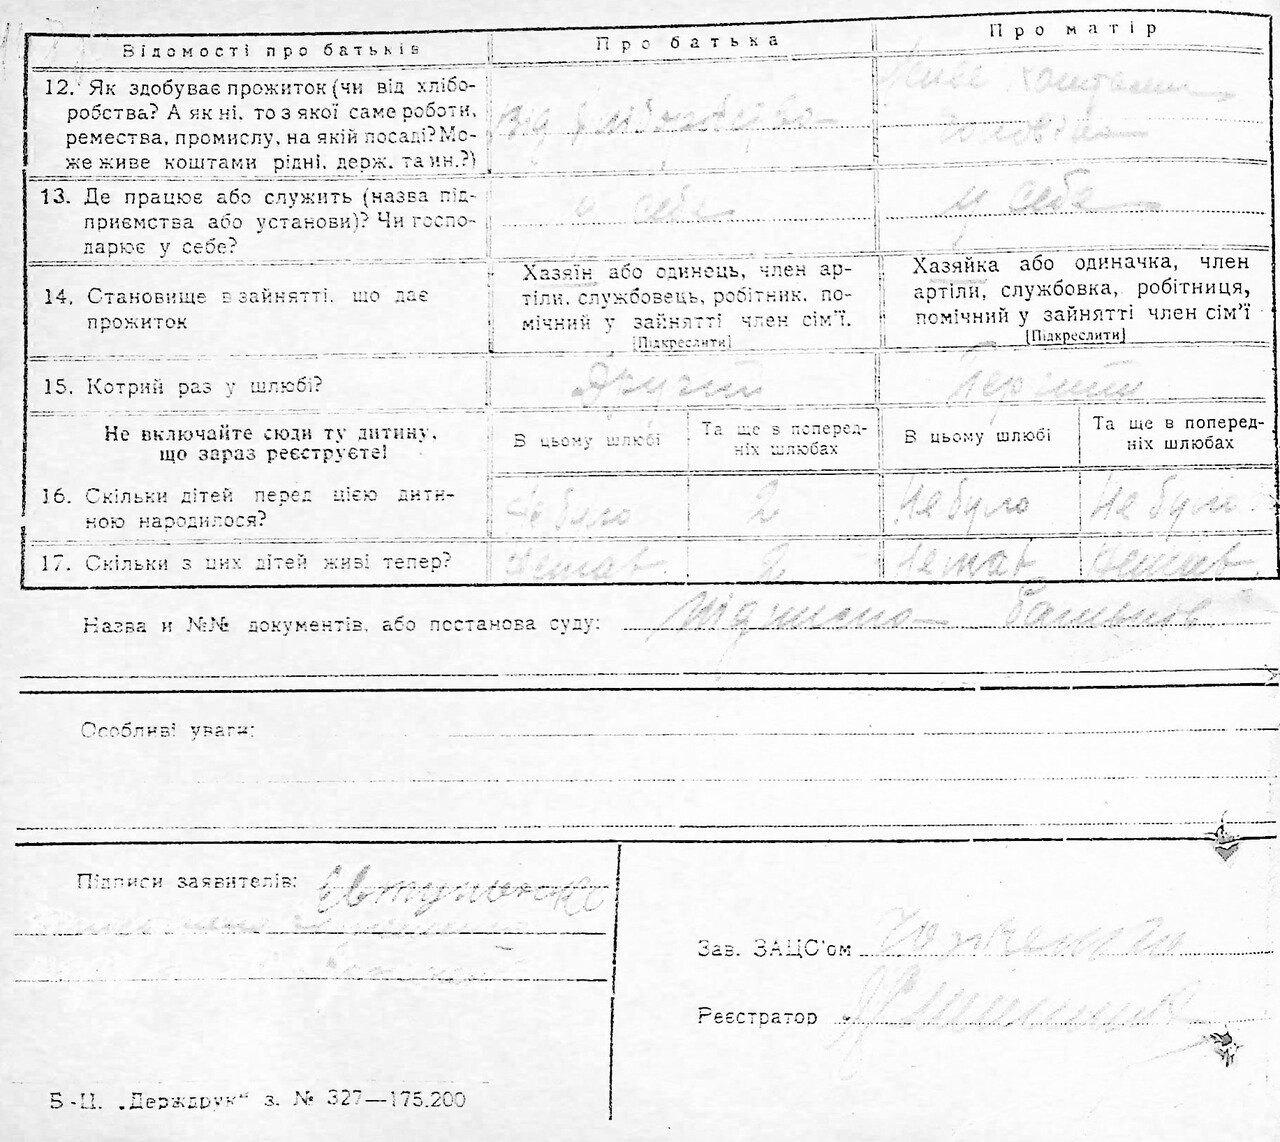 Відомості про батьків
Про батька
Про матір
12. Як здобуває прожиток (чи від хлібо-
робства? А як ні, то з якої саме роботи,
ремества, промислу, на якій посаді? Мо-
же живе коштами рідні, держ. та ин.?)
Від хліборобства
Живе коштами
чоловіка
13. Де працює або служить (назва під-
приємства або установи)? Чи госпо-
дарює у себе?
у себе
у себе
14. Становище в занятті, що дає
прожиток
Хазяїн або одинець, член ар-
тіли, службовець, робітник, по-
мічний у зайнятті член сім'ї.
[Підкреслити]
Хазяйка або одиначка, член
артіли, службовка, робітниця,
помічний у зайнятті член сім'ї
[Підкреслити]
15. Котрий раз у шлюбі?
Другий
Перший
Не включайте сюди ту дитину,
що зараз реєструєте!
В цьому шлюбі
Та ще в поперед-
ніх шлюбах
В цьому шлюбі
Та ще в поперед-
ніх шлюбах
16. Скільки дітей перед цією дити-
ною народилося?
Не було
2
Не було
Не було
17. Скільки з цих дітей живі тепер?
Немає
2
Немає
Немає
Назва й №№ документів, або постанова суду:
Особливі уваги:
Підписи заявителів:
Зав. ЗАЦС'ом
Реєстратор
Б-Ц. „Держдрук“ з. № 327—175.200